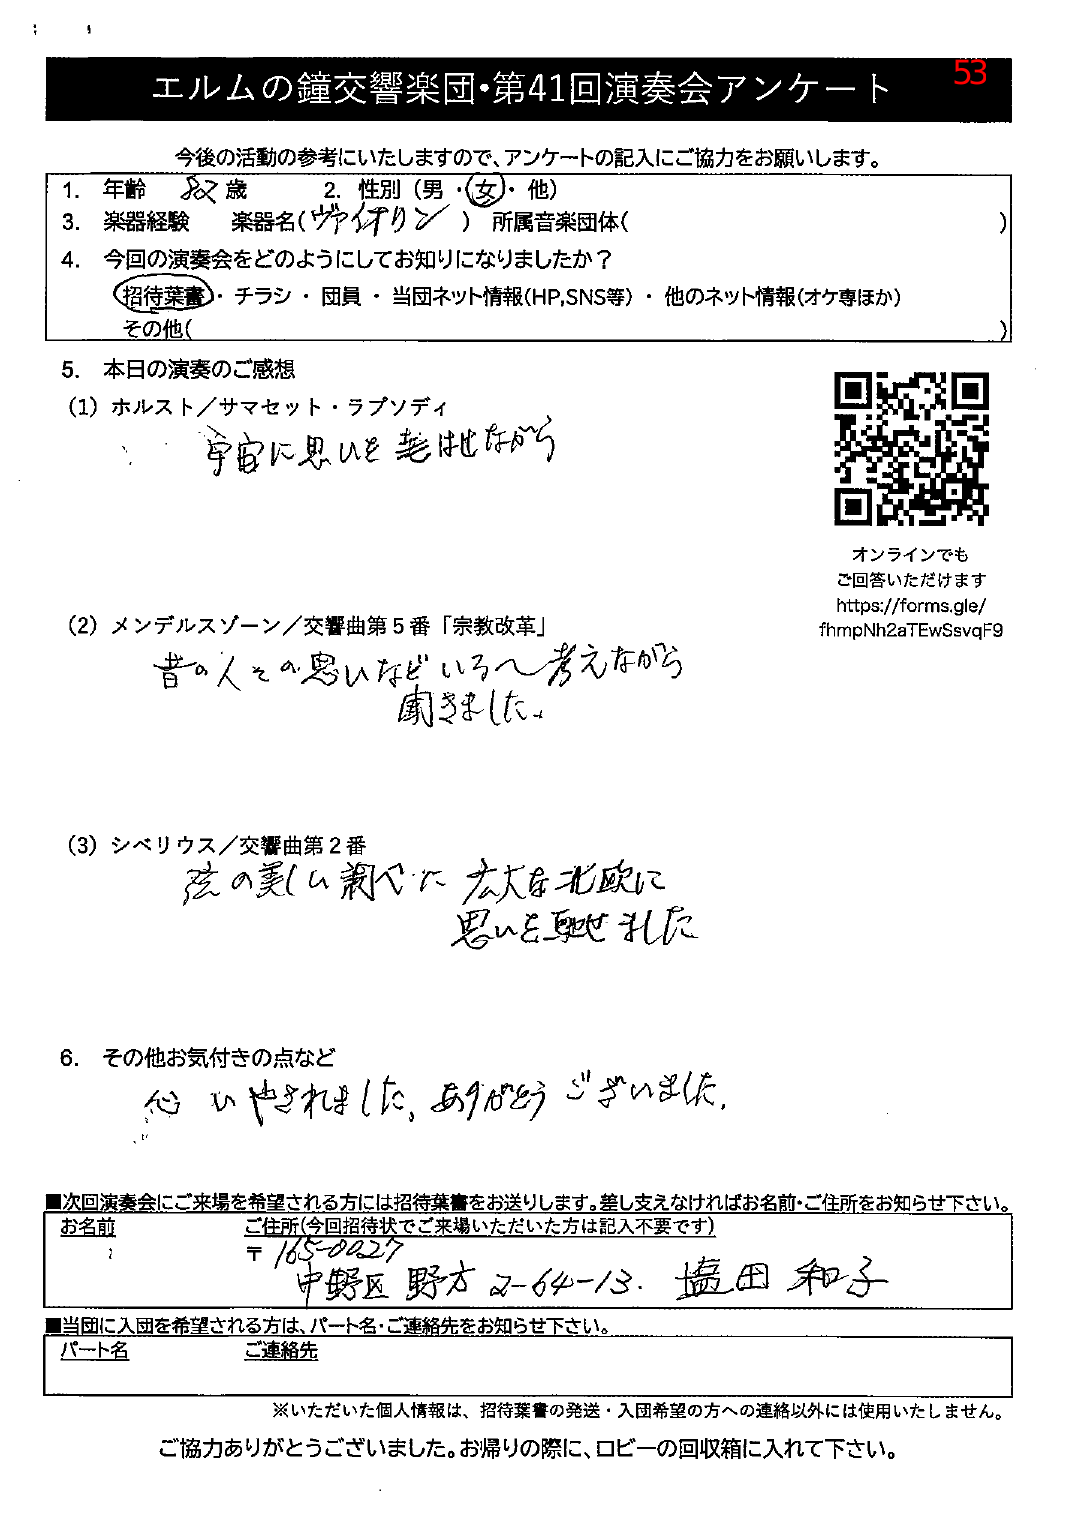 53
エルムの鐘交響楽団・第41回演奏会アンケート
今後の活動の参考にいたしますので、アンケートの記入にご協力をお願いします。
1. 年齢 82 歳 2. 性別（男・女・他）
3. 楽器経験 楽器名（ヴァイオリン） 所属音楽団体（ ）
4. 今回の演奏会をどのようにしてお知りになりましたか？
招待葉書・チラシ・団員・当団ネット情報(HP,SNS等)・他のネット情報(オケ専ほか)
その他( )
5. 本日の演奏のご感想
(1) ホルスト／サマセット・ラプソディ
宇宙に思いを はせながら
オンラインでも
ご回答いただけます
https://forms.gle/
fhmpNh2aTEwSsvqF9
(2) メンデルスゾーン／交響曲第５番「宗教改革」
昔の人々の思いなどいろ〱考えながら
聞きました。
(3) シベリウス／交響曲第２番
弦の美しい調べに 広大な北欧に
思いを馳せました
6. その他お気付きの点など
心 いやされました。ありがとうございました。
■次回演奏会にご来場を希望される方には招待葉書をお送りします。差し支えなければお名前・ご住所をお知らせ下さい。
お名前 ご住所(今回招待状でご来場いただいた方は記入不要です)
〒165-0027
中野区 野方 2-64-13. 塩田 和子
■当団に入団を希望される方は、パート名・ご連絡先をお知らせ下さい。
パート名 ご連絡先
※いただいた個人情報は、招待葉書の発送・入団希望の方への連絡以外には使用いたしません。
ご協力ありがとうございました。お帰りの際に、ロビーの回収箱に入れて下さい。